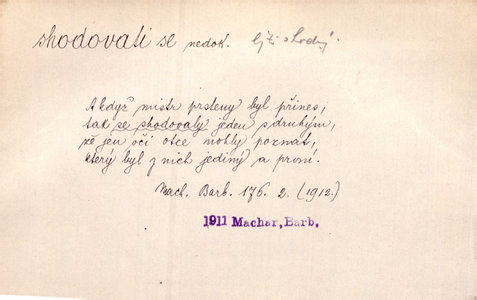 shodovati se nedok.
A když mistr prsteny byl přines,
tak se shodovaly jeden s druhým,
že jen oči otce mohly poznat,
který byl z nich jediný a první.
Mach. Barb. 176. 2. (1912.)
1911 Machar, Barb.